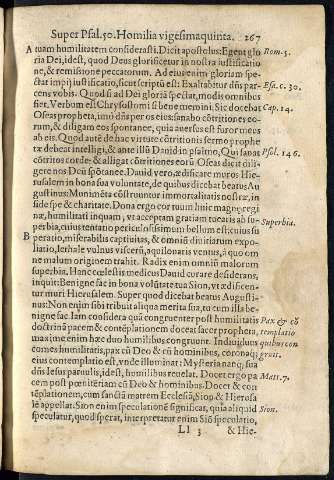 Super Psal.50. Homilia vigesimaquinta. 267
A tuam humilitatem considerasti. Dicit apostolus: Egent glo Rom.3.
ria Dei, idest, quod Deus glorificetur in nostra iustificatio
ne, & remissione peccatorum. Ad eius enim gloriam spe-
ctat impij iustificatio, sicut scriptū est: Exaltabitur dñs par- Esa.c.30.
cens vobis. Quod si ad Dei gloriā spectat, modis omnibus
fiet. Verbum est Chrysostomi si bene memini. Sic docebat Cap.14.
Oseas propheta, imò dñs per os eius: sanabo cōtritiones eo-
rum, & diligam eos spontanee, quia auersus est furor meus
ab eis. Quod autē de hac iustificationis sermo prophe
tæ debeat intelligi, & ante illū Dauid in psalmo, Qui sanat Psal.146.
cōtritos corde & alligat cōtritiones eorū Oseas dicit dili-
gere nos Deū spōtanee. Dauid vero, ædificare muros Hie-
rusalem in bona sua voluntate, de quibus dicebat beatus Au
gustinus: Monimēta cōstruuntur immortalitatis nostræ, in
side spe & charitate. Dona ergo cor tuum huic magnæ regi
næ, humilitati inquam, vt acceptam gratiam tuearis ab su- Superbia.
perbia, cuius tentatio periculosissimum bellum est: cuius su
B peratio, miserabilis captiuitas, & omniū diuitiarum expo-
liatio, lethale vulnus viscerū, aquilonaris ventus, à quo om
ne malum originem trahit. Radix enim omniū malorum
superbia. Hanc cœlestis medicus Dauid curare desiderans,
inquit: Benigne fac in bona volūtate tua Sion, vt ædificen-
tur muri Hierusalem. Super quod dicebat beatus Augusti-
nus: Non enim sibi tribuit aliqua merita sua, tu cum illis be-
nigne fac. Iam considera quā congruenter post humilitatis Pax & cō
doctrinā pacem & contēplationem doceat sacer propheta, templatio
maxime enim hæc duo humilibus congruunt. Induuiglum quibus con
comes humilitatis, pax cū Deo & cū hominibus, coronaq; gruit.
eius contemplatio est, vnde illuminat: Mysteria nanq; sua
dñs Iesus paruulis, idest, humilibus reuelat. Docet ergo pa Matt.7.
cem post pœnitētiam cū Deo & hominibus. Docet & con
tēplationem, cum sanctā matrem Ecclesiā, Sion & Hierosa
lē appellat. Sion enim speculationē significat, quia aliquid Sion.
speculatur, quod sperat, interpretatur enim Siō speculatio,
Ll 3 & Hie-